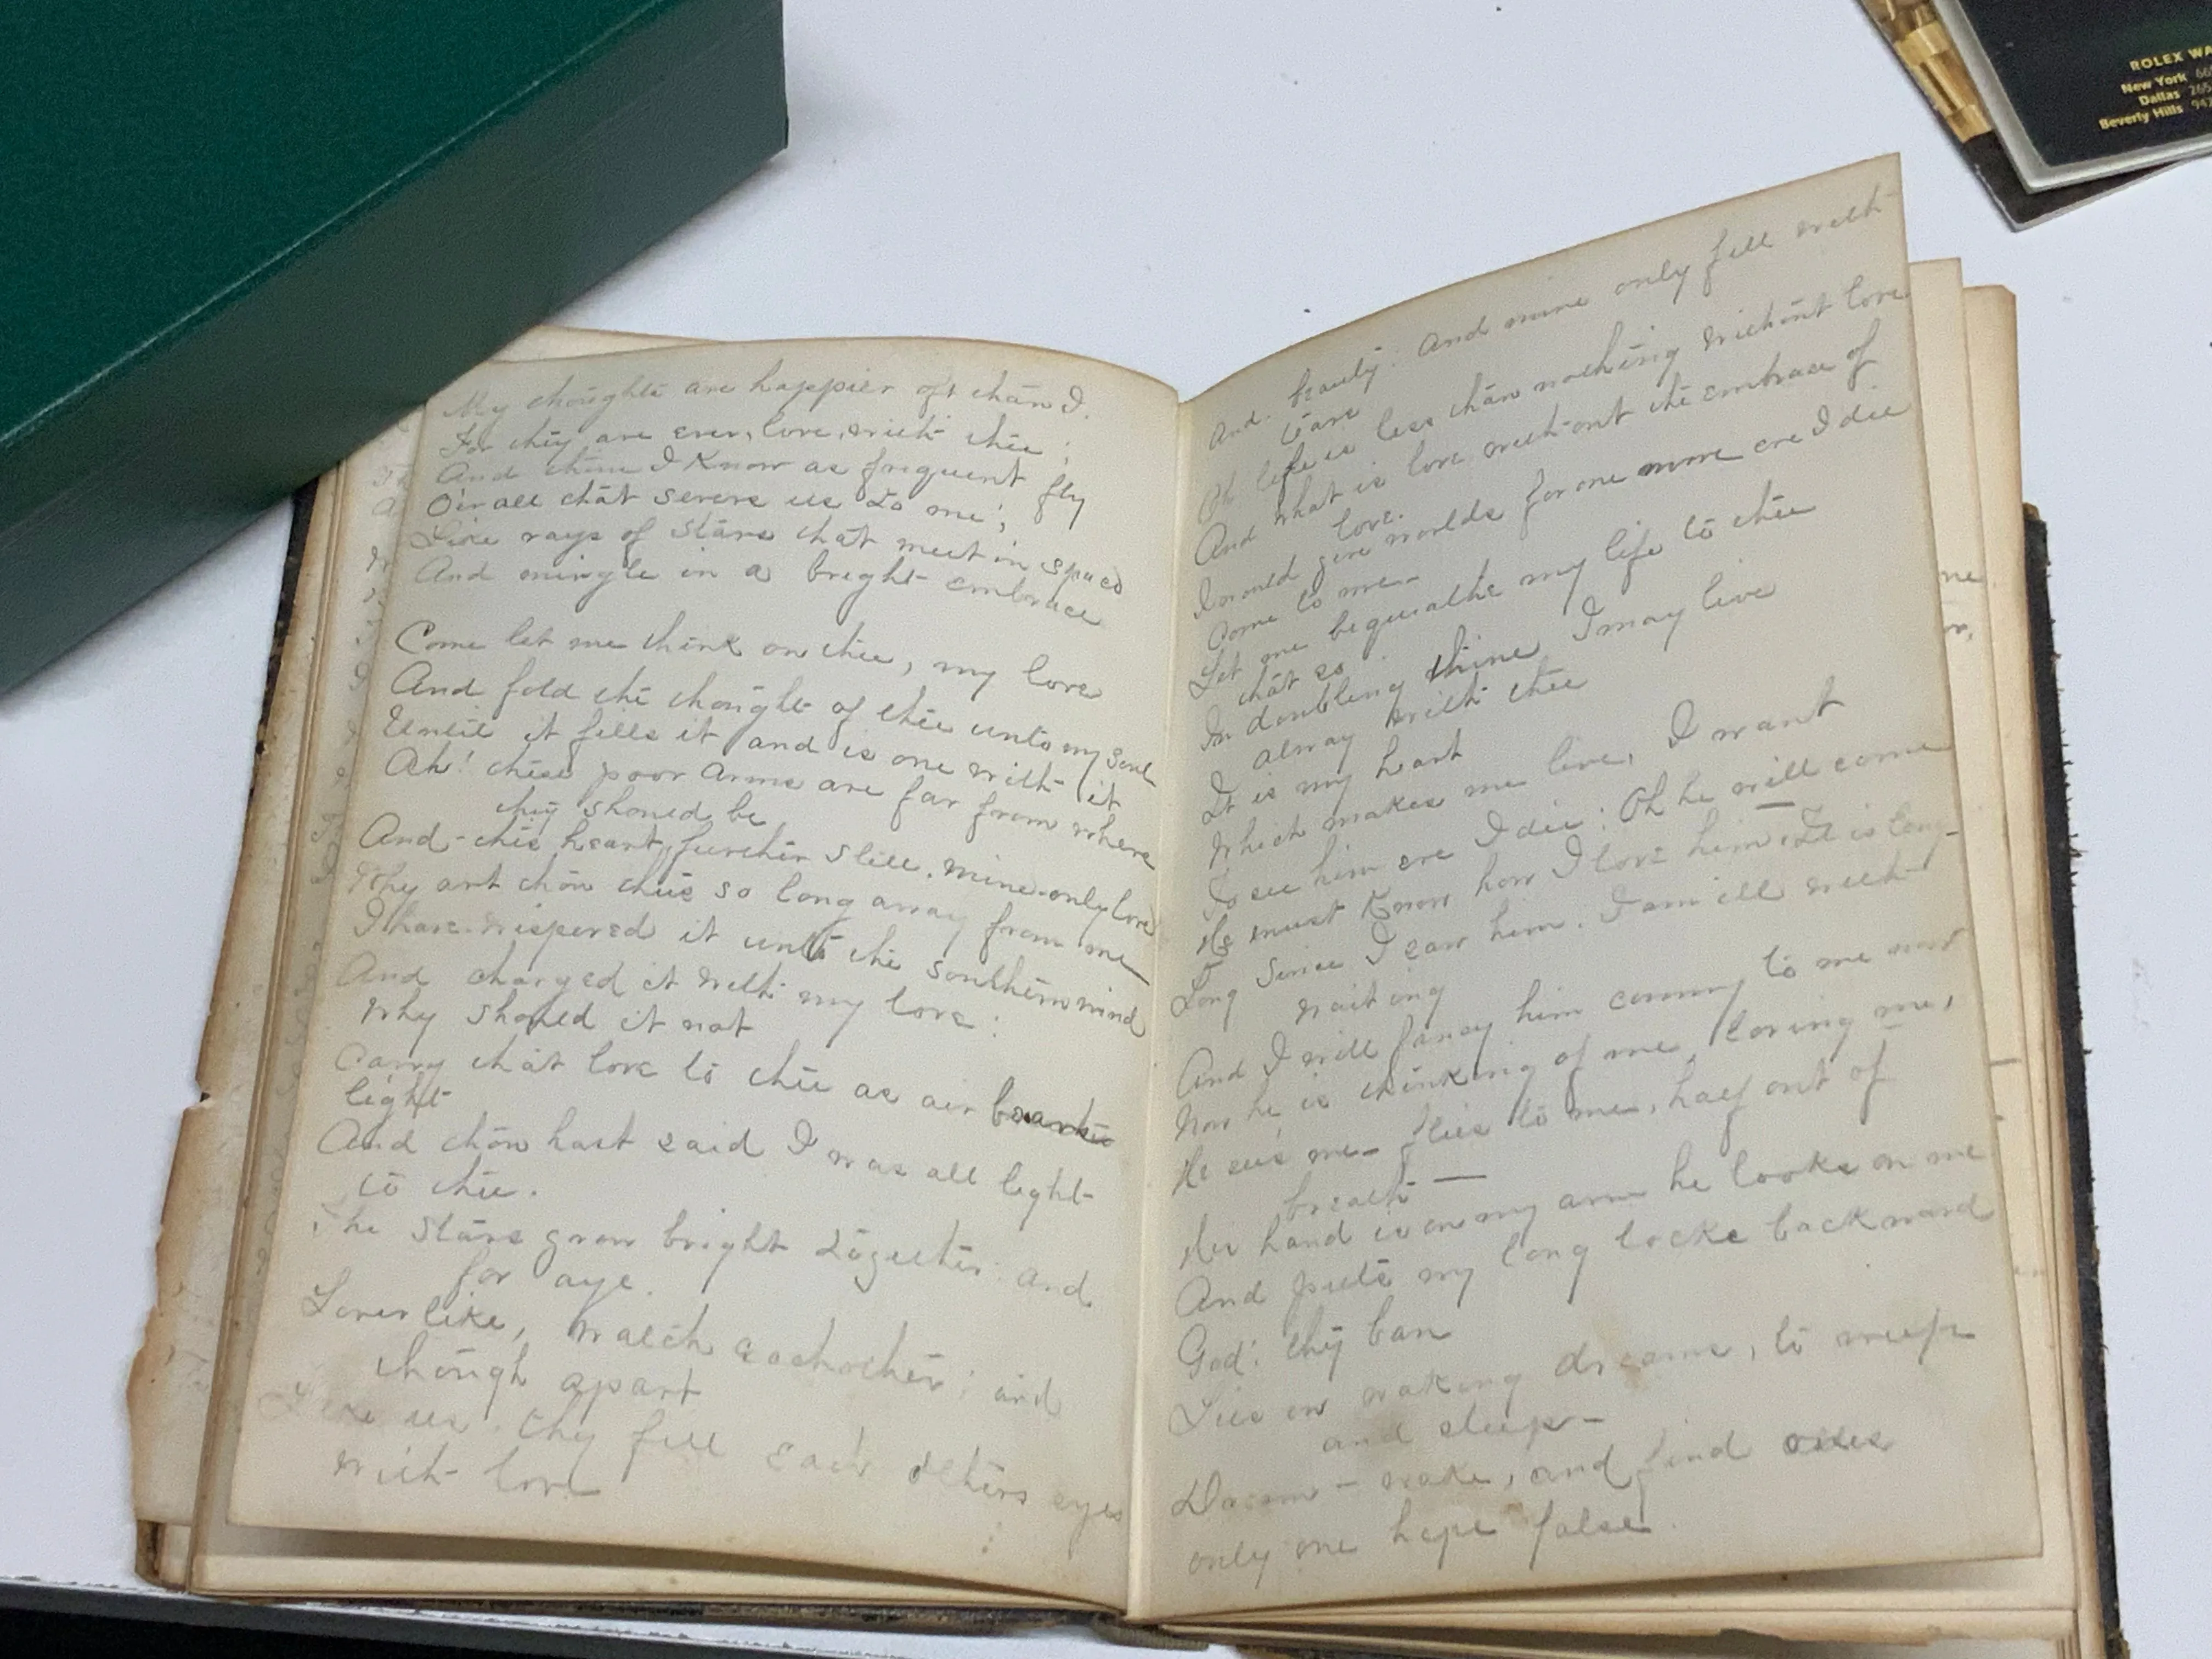 My thoughts are happier oft than I.
For they are ever, love, with thee ;
And thine I Know as frequent fly
O'er all that severs us to me ;
Like rays of Stars that meet in space
And mingle in a bright embrace
Come let me think on thee, my love
And fold the thought of thee unto my Soul
Until it fills it and is one with it
Ah! these poor Arms are far from where
they should be
And this heart, further Still. mine only love
Why art thou thus so long away from me
I have wispered it unto the Southern wind
And charged it with my love :
Why should it not
Carry that love to thee as air
light
And thou hast said I was all light
to thee.
The Stars grow bright together and
for aye.
Lover like, watch each other ; and
though apart
Like us. they fill each others eyes
with love
And beauty. And mine only fill with
tears
Oh life is less than nothing without love
And what is love without the embrace of
love.
I would give worlds for one more ere I die
Come to me-
Let me bequeathe my life to thee
that so
In doubling thine I may live
alway with thee
It is my heart
Which makes me live, I want
To see him ere I die : Oh he will come
He must Know how I love him It is long-
Long Since I saw him. I am ill with
waiting
And I will fancy him coming to me now
Now he is thinking of me, loving me,
He sees me- flies to me, half out of
breath —
His hand is on my arm he looks on me
And puts my long locks backward
God! thy ban
Lies on waking dreams, to weep
and sleep-
wake, and find
only one hope false.
ne
ROLEX WA
New York 66
Dallas 265
Beverly Hills 94